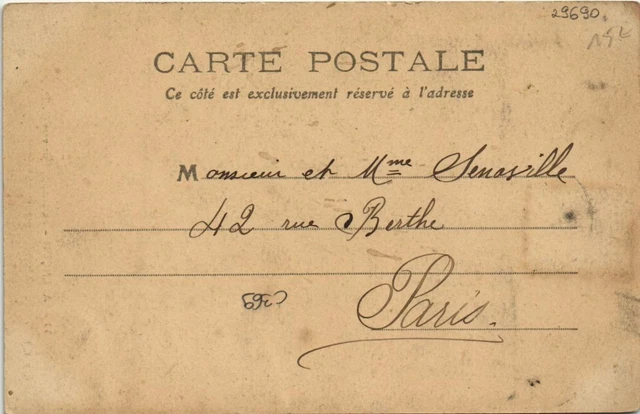 29690
CARTE POSTALE
Ce côté est exclusivement réservé à l'adresse
Monsieur et Mme Senoville
42 rue Berthe
Paris.